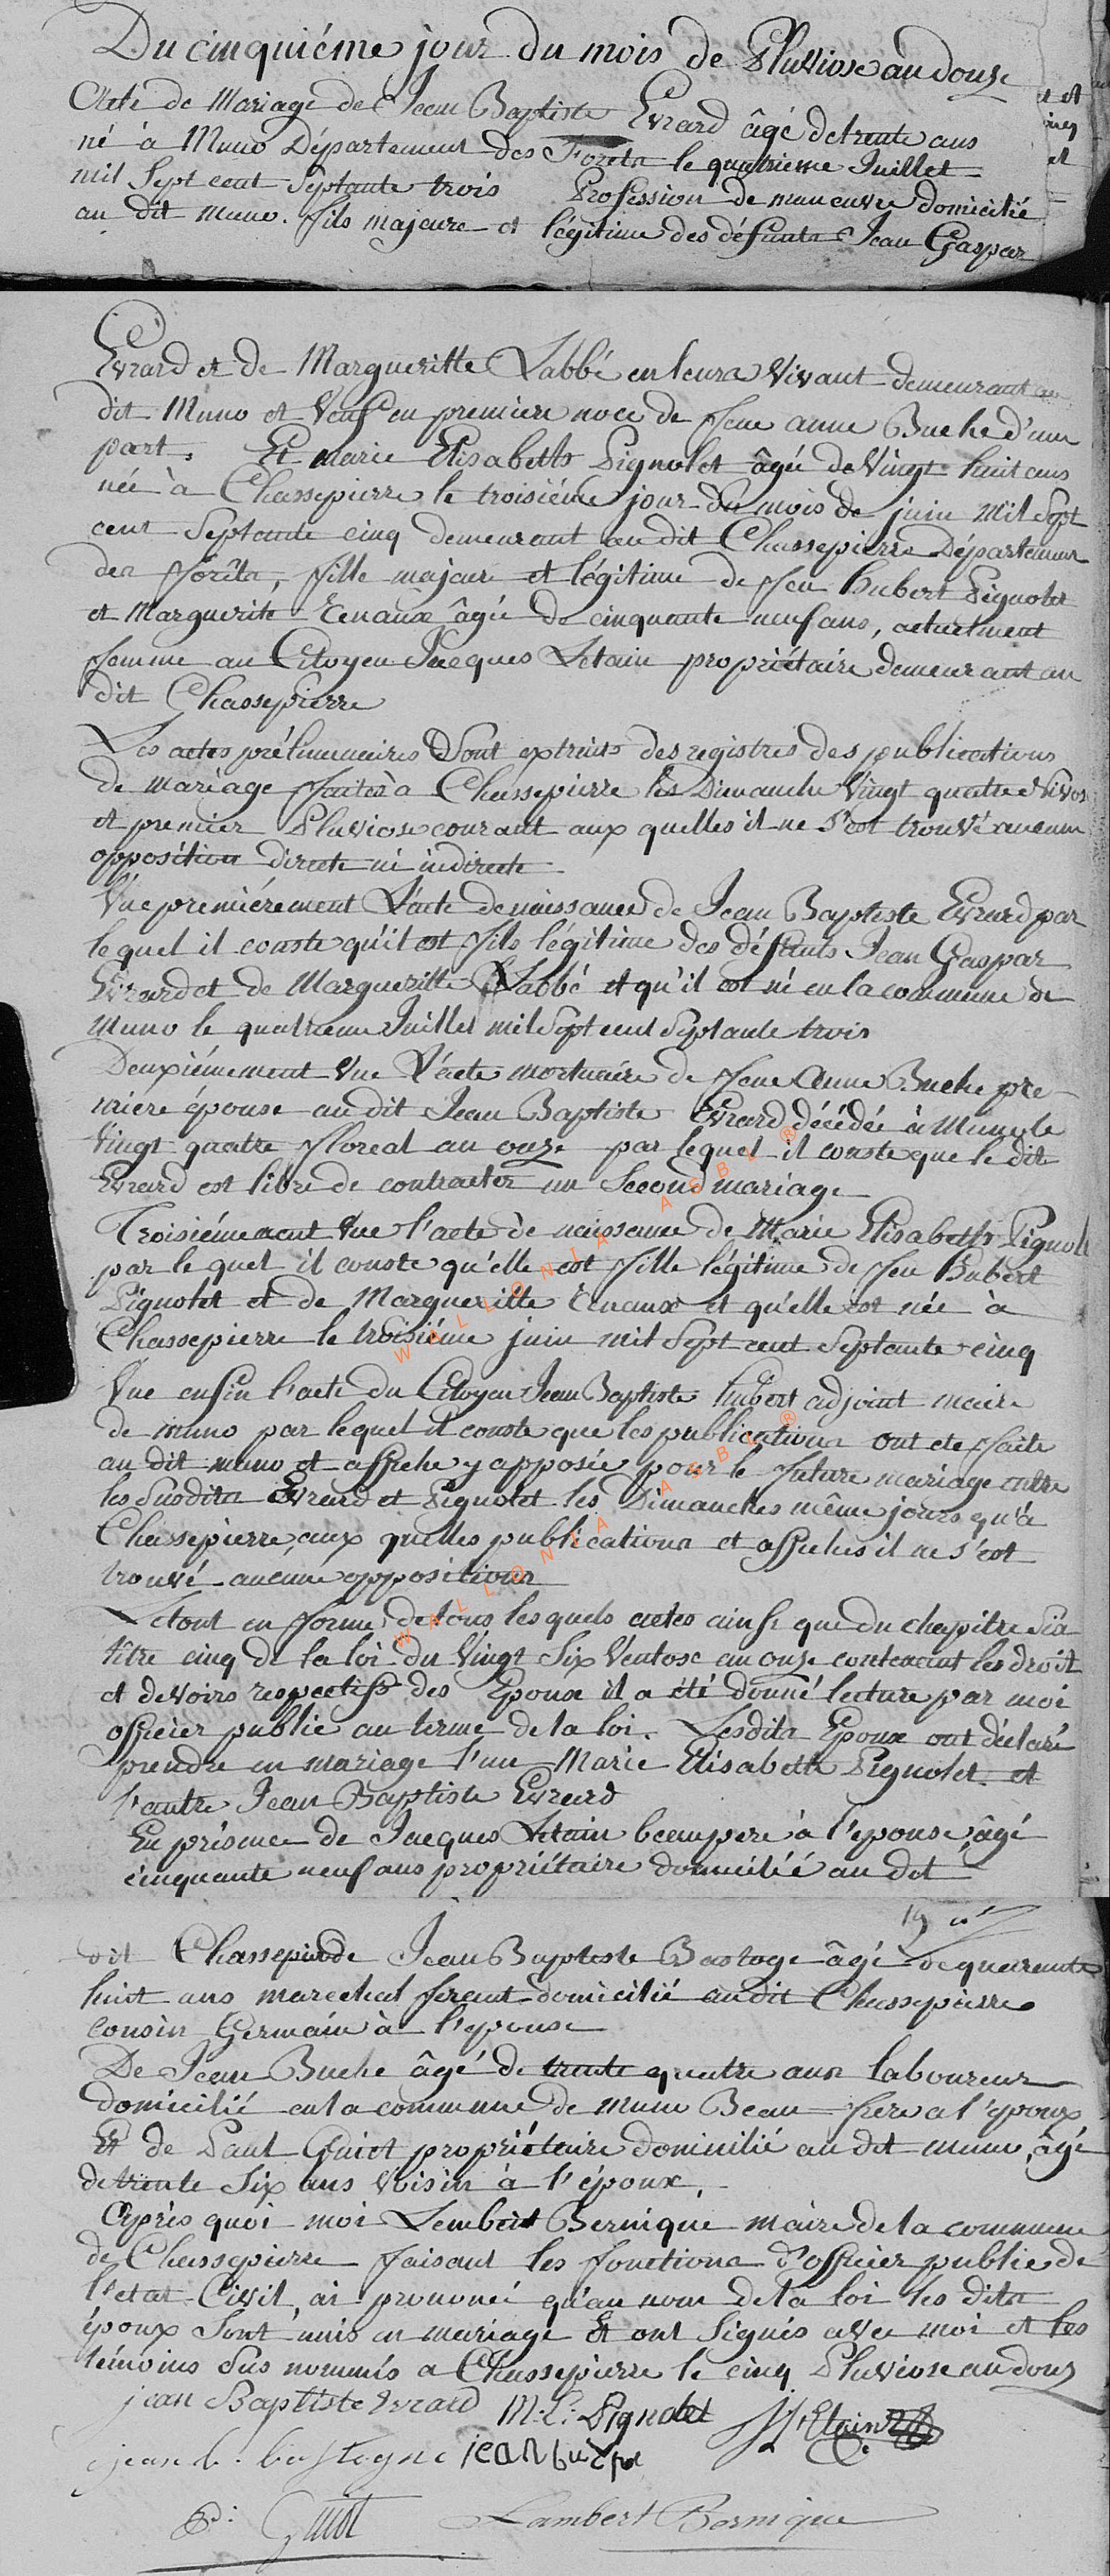 Du cinquiéme jour du mois de Pluviose an douse
Acte de Mariage de Jean Baptiste Evrard âgé de trente ans
né à Muno Département des Forêts le quatrieme Juillet
mil Sept cent Septante trois Profession de maneuvre domicilié
au dit muno. fils majeure et légitime des défunts Jean Gaspar
Evrard et de Margueritte Labbé en leurs Vivant demeurant au
dit Muno et Veuf en premiere noce de feue anne Buche d'une
part, Et marie Elisabeth Pignolet âgée de Vingt huit ans
née à Chassepierre le troisiéme jour du mois de juin mil Sept
cent Septante cinq demeurant au dit Chassepierre Département
des forêts, fille majeure et légitime de feu hubert Pignolet
et Marguerite Evaux âgée de cinquante neuf ans, actuelment
femme au Citoyen Jacques Letain propriétaire demeurant au
dit Chassepierre
Les actes préliminaires Sont extraits des registres des publications
de mariage faites à Chassepierre les Dimanche Vingt quatre Nivos
et premier Pluviose courant aux quelles il ne s'est trouvé aucune
opposition directe ni indirecte
Vue premiérement L'acte de naissance de Jean Baptiste Evrard par
lequel il conste qu'il est fils légitime des défunts Jean Gaspar
Evrard et de Margueritte Labbé et qu'il est né en la commune de
Muno le quatrieme Juillet mil Sept cent Septante trois
Deuxiémement Vue L'acte mortuaire de feue Anne Buche pre
miere épouse au dit Jean Baptiste Evrard décédée à Muno le
Vingt quatre floreal an onze par lequel il conste que le dit
Evrard est libre de contracter un Second mariage
Troisiémement Vue l'acte de naissance de Marie Elisabeth Pignolet
par le quel il conste qu'elle est fille légitime de feu Hubert
Pignolet et de Margueritte Evaux et qu'elle est née à
Chassepierre le troisiéme juin mil Sept cent Septante cinq
Vue enfin l'acte du Citoyen Jean Baptiste hubert adjoint maire
de muno par lequel il conste que les publications ont ete faite
au dit muno et affiche y apposée pour le future mariage entre
les Susdits Evrard et Pignolet les Dimanches même jours qu'à
Chassepierre, aux quelles publications et affiches il ne s'est
trouvé aucune opposition
Le tout en forme, de tous lesquels actes ainsi que du chapitre Six
titre cinq de la loi du Vingt Six Ventose an onze contenant les droit
et devoirs respectifs des Epoux il a été donné lecture par moi
officier public au terme de la loi. Lesdits Epoux ont déclaré
prendre en mariage l'un Marie Elisabeth Pignolet et
l'autre Jean Baptiste Evrard
En présence de Jacques Letain beaupere à l'epouse, âgé
cinquante neuf ans propriétaire domicilié au dit
19
dit Chassepierre de Jean Baptiste Bastogne âgé de quarente
huit ans marechal ferant domicilié audit Chassepierre
cousin Germain à l'epouse
De Jean Buche âgé de trente quatre ans laboureur
domicilié en la commune de Muno Beau-frere a l'époux
Et de Paul Guiot propriétaire domicilié au dit muno, âgé
de trente Six ans Voisin à l'époux,
Après quoi moi Lembert Bernique maire de la commune
de Chassepierre faisant les fonctions d'officier public de
l'etat Civil, ai prononcé qu'au nom de la loi les dits
époux Sont unis en mariage Et ont Signés avec moi et les
témoins Sus nommés a Chassepierre le cinq Pluviose an douz
jean Baptiste evrard M: E: Pignolet J Letain
jean b. bastogne jean buche
P: Guiot Lambert Bernique
WALLONIA ASBL ®
WALLONIA ASBL ®